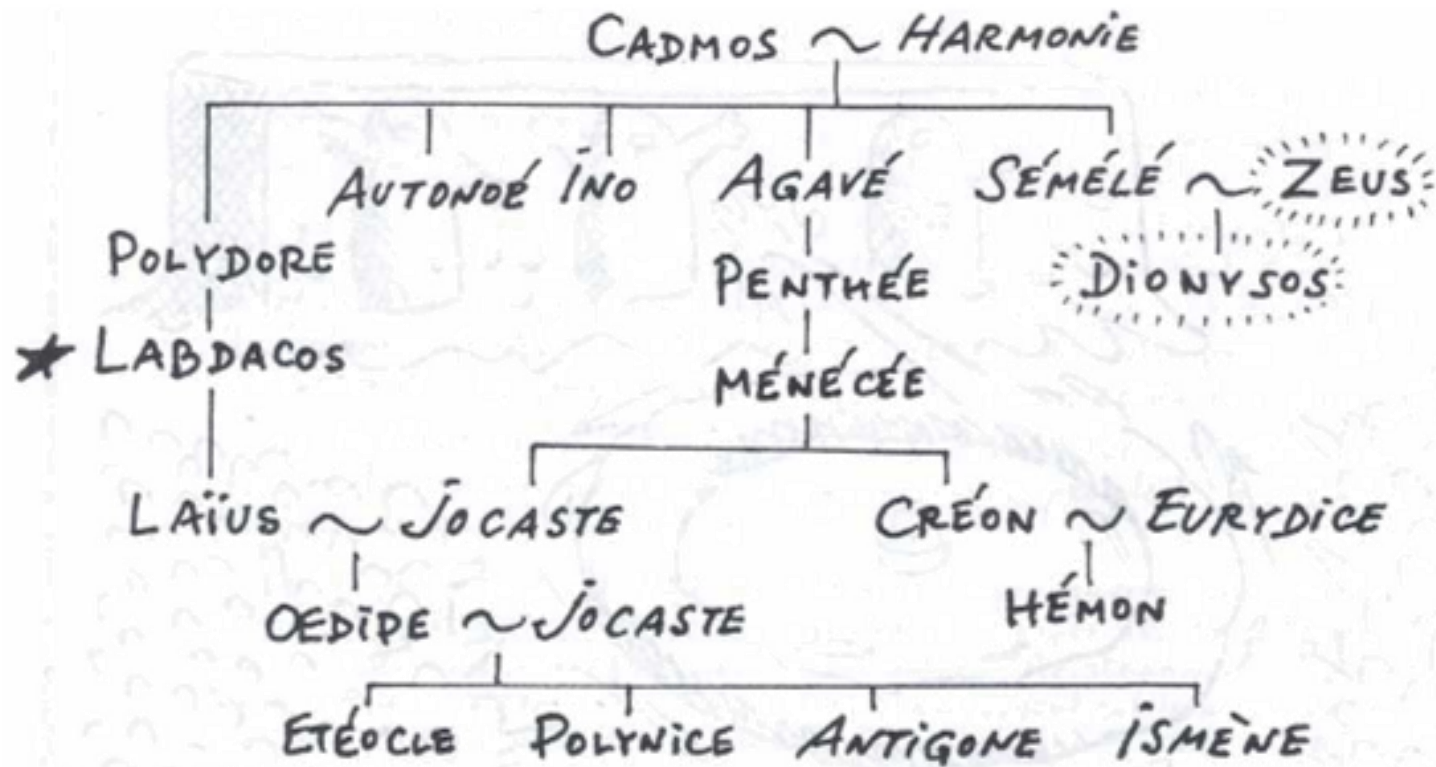 CADMOS ~ HARMONiE
AUTONOÉ iNO AGAVÉ SÉMÉLÉ ~ ZEUS
POLYDORE PENTHÉE DiONYSOS
★ LABDACOS MÉNÉCÉE
LAÏUS ~ JOCASTE CRÉON ~ EURYDiCE
OEDiPE ~ JOCASTE HÉMON
ETÉOCLE POLYNiCE ANTiGONE iSMÈNE